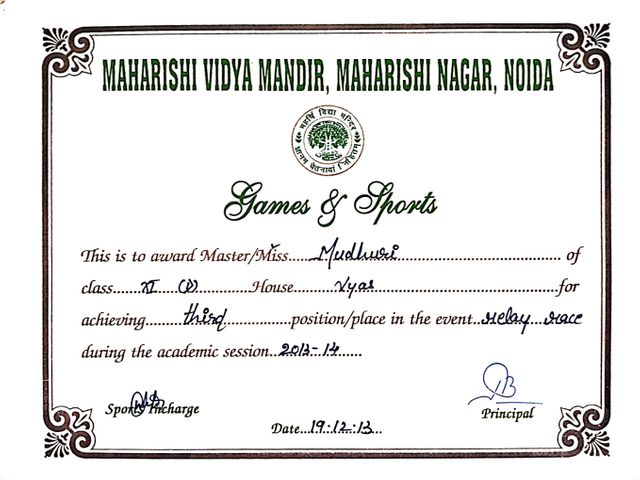 MAHARISHI VIDYA MANDIR, MAHARISHI NAGAR, NOIDA
महर्षि विद्या मन्दिर
Games & Sports
This is to award Master/Miss......Mudhuri...... of
class......XI House......Vyas......for
achieving......third......position/place in the event...relay race
during the academic session...2013-14......
Sports Incharge
Principal
Date...19.12.13...